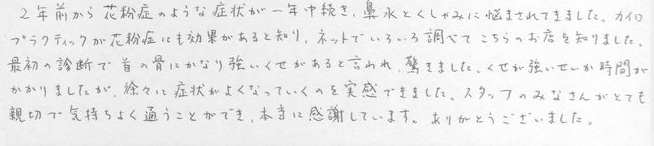 2年前から花粉症のような症状が一年中続き、鼻水とくしゃみに悩まされてきました。カイロ
プラクティックが花粉症にも効果があると知り、ネットでいろいろ調べてこちらのお店を知りました。
最初の診断で首の骨にかなり強いくせがあると言われ、驚きました。くせが強いせいか時間が
かかりましたが、徐々に症状がよくなっていくのを実感できました。スタッフのみなさんがとても
親切で気持ちよく通うことができ、本当に感謝しています。ありがとうございました。